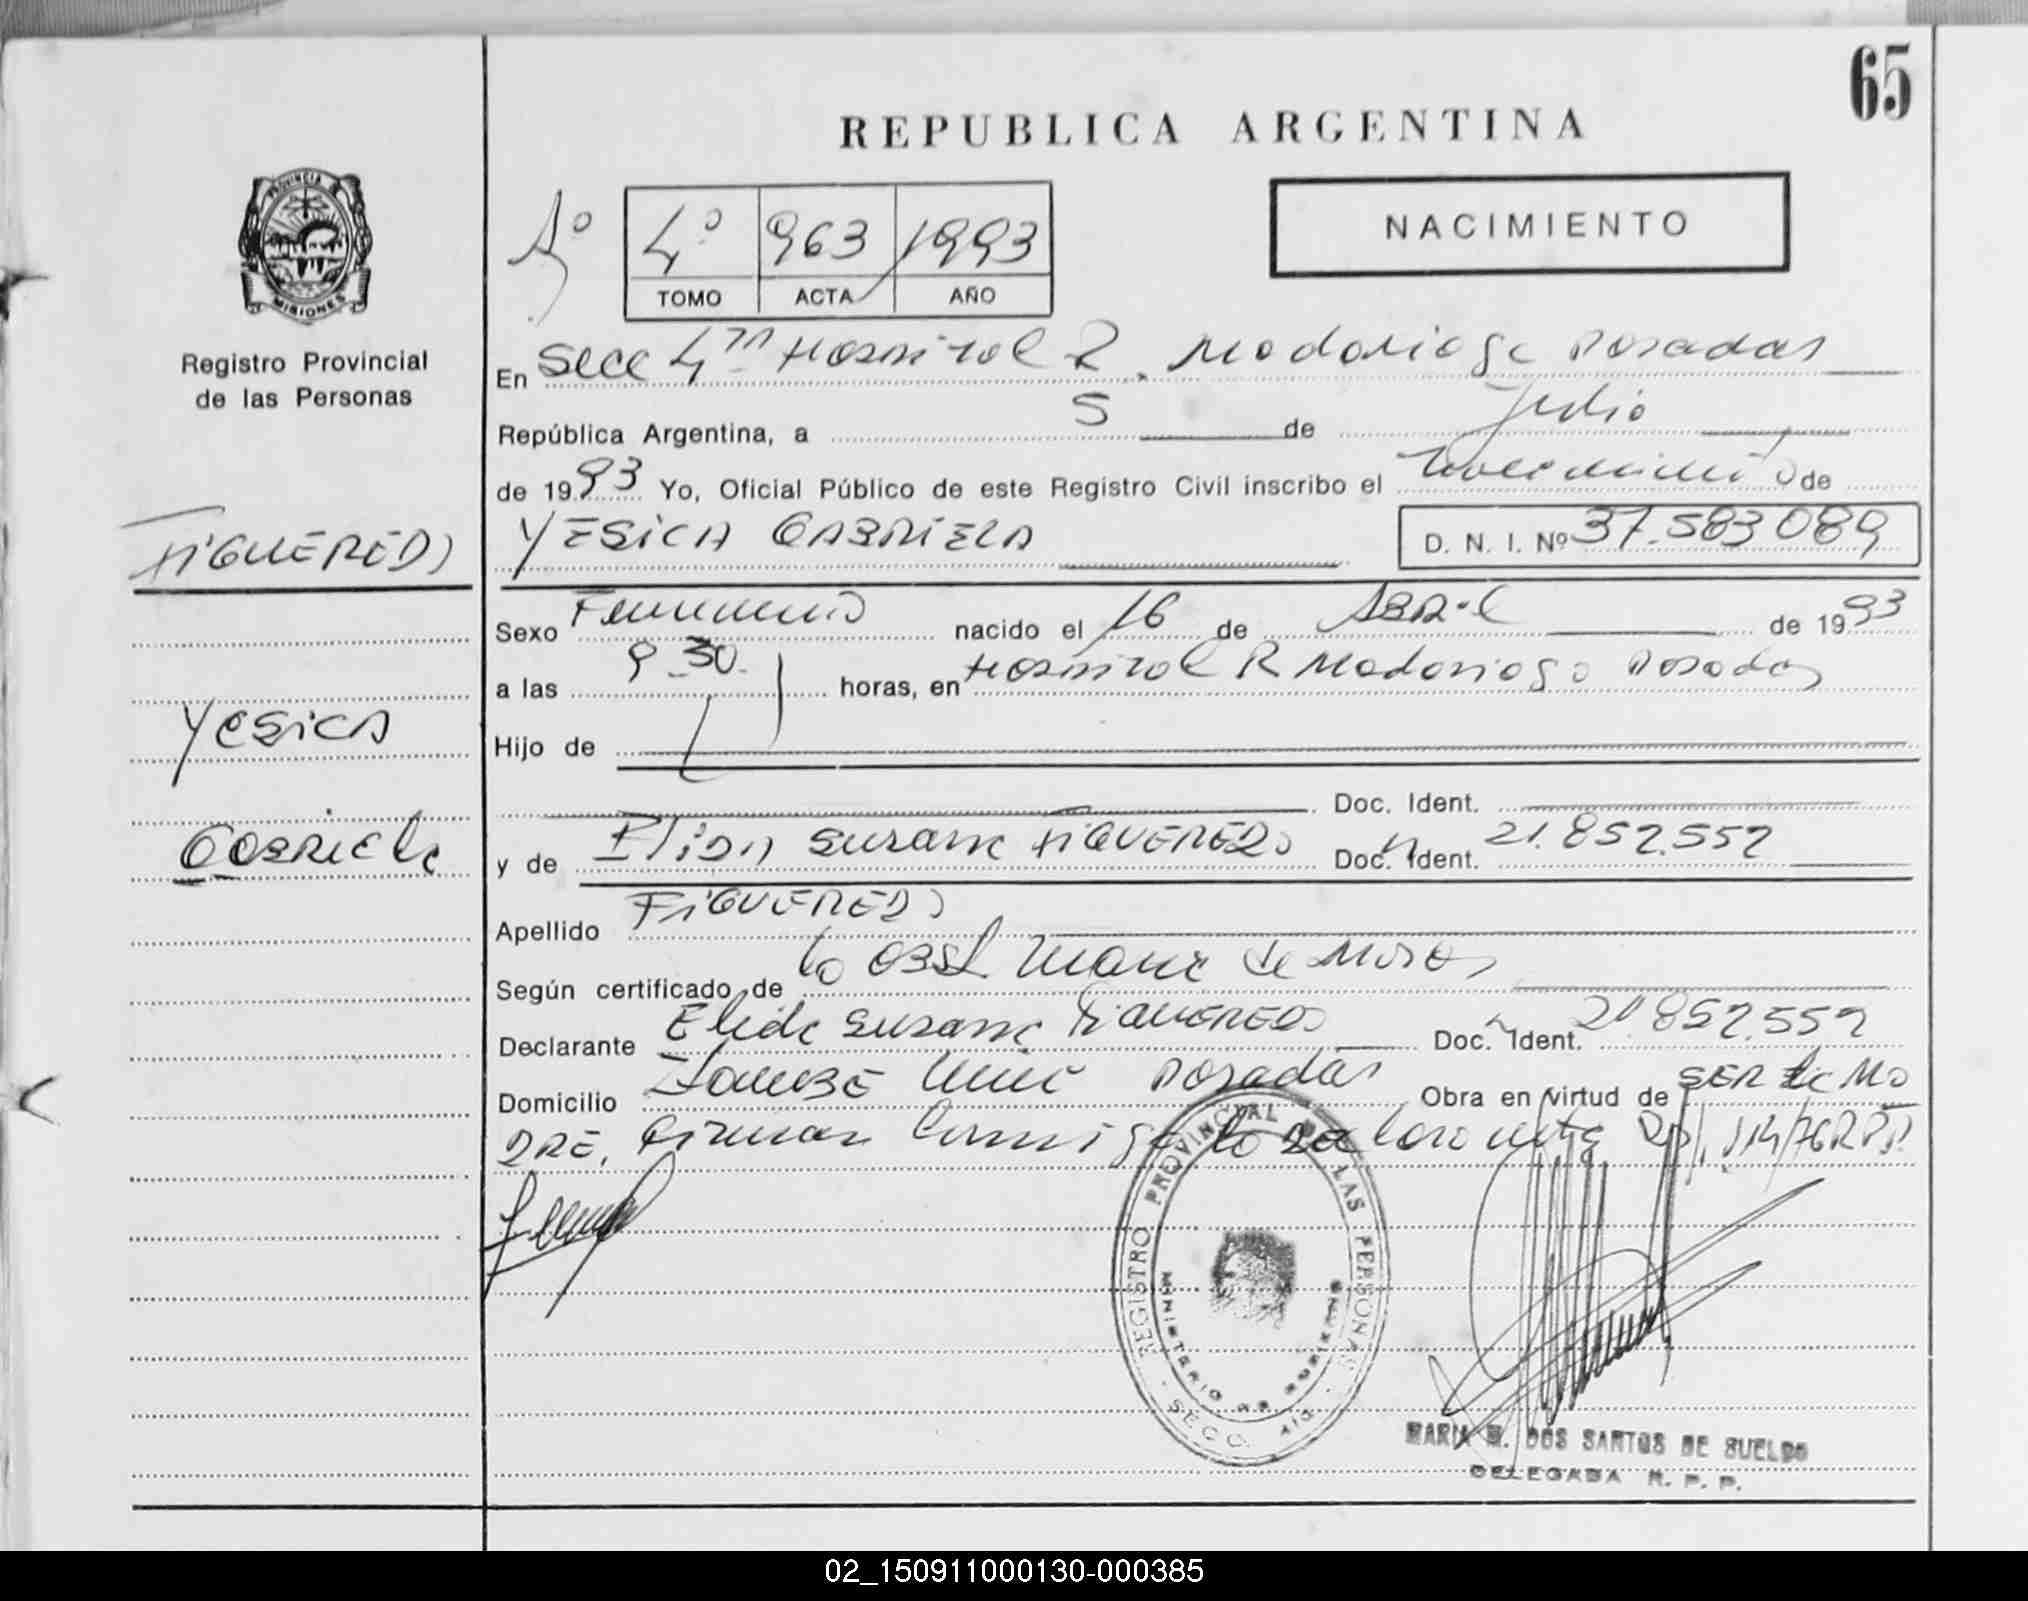 65
REPUBLICA ARGENTINA
PROVINCIA DE
MISIONES
Aº
4º 963 1993
TOMO ACTA AÑO
NACIMIENTO
Registro Provincial
de las Personas
En Secc 4ta Hospital R. Madariaga Posadas
República Argentina, a 5 de Julio
de 1993 Yo, Oficial Público de este Registro Civil inscribo el nacimiento de
FIGUEREDO
YESICA GABRIELA D. N. I. Nº 37.583089
Sexo Femenino nacido el 16 de ABRIL de 1993
a las 9.30 horas, en Hospital R Madariaga Posadas
Yesica
Hijo de
Doc. Ident.
Gabriela
y de Elida Susana FIGUEREDO Doc. Ident. 21.852.552
Apellido FIGUEREDO
Según certificado de la Obst
Declarante Elida Susana FIGUEREDO Doc. Ident. 21.852.552
Domicilio Posadas Obra en virtud de SER la MA
DRE, Firman conmigo
REGISTRO PROVINCIAL DE LAS PERSONAS
MINISTERIO DE GOBIERNO
SECC. 4ta
MARIA M. DOS SANTOS DE SUELDO
DELEGADA R. P. P.
02_150911000130-000385